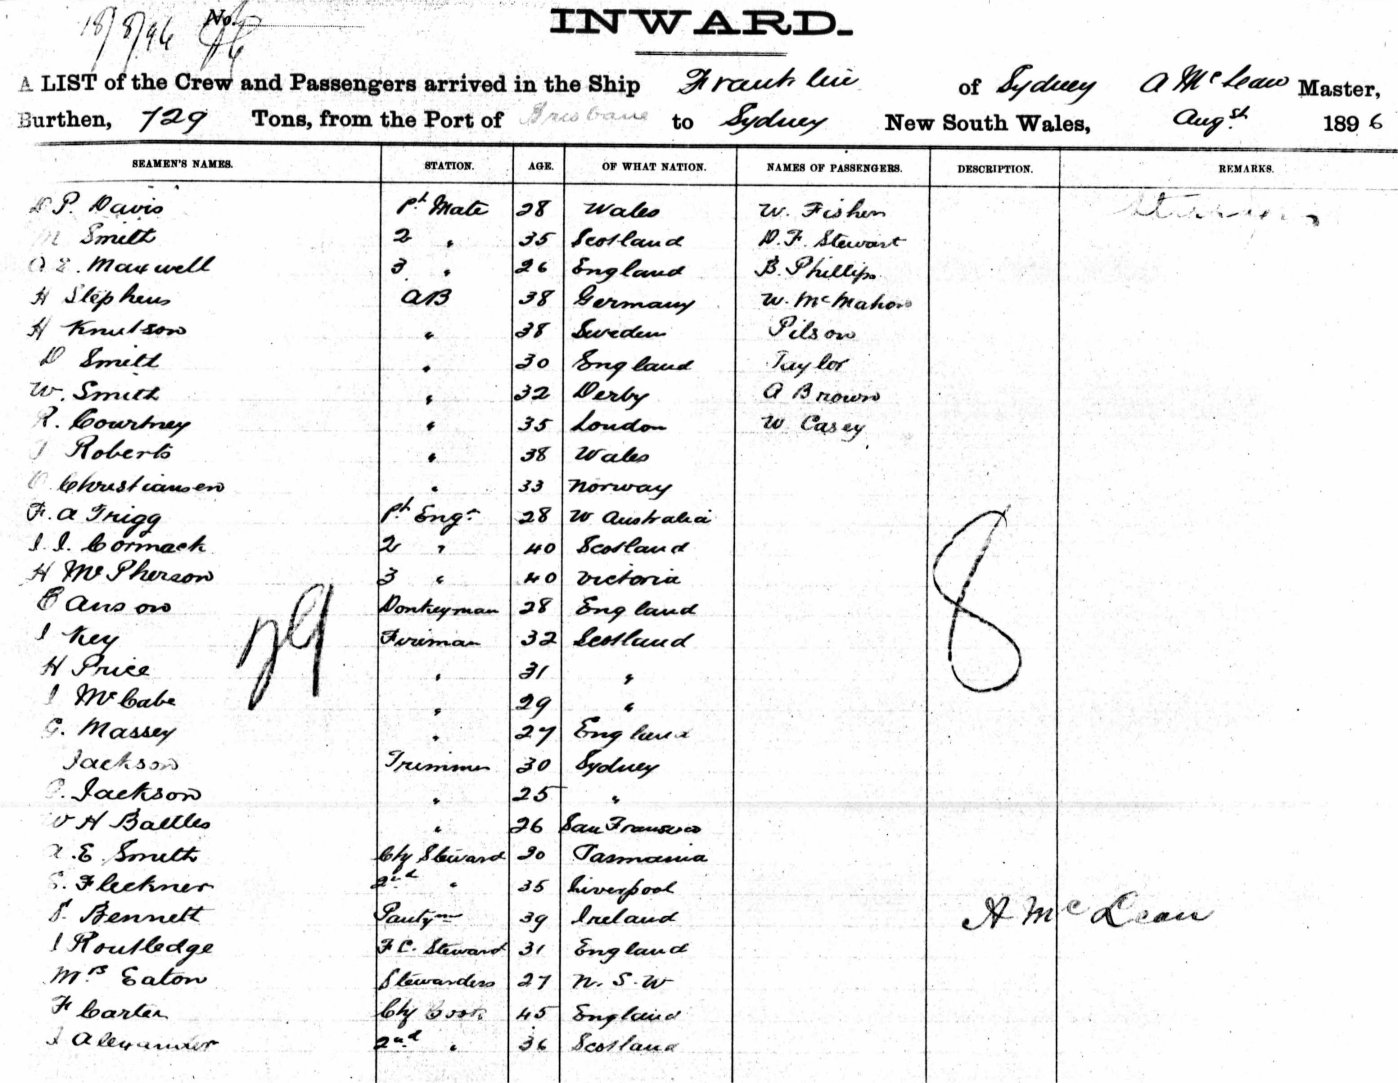 18/8/96 No.
INWARD.
A LIST of the Crew and Passengers arrived in the Ship Franklin of Sydney A McLean Master,
Burthen, 729 Tons, from the Port of Brisbane to Sydney New South Wales, Augst 1896
SEAMEN'S NAMES. STATION. AGE. OF WHAT NATION. NAMES OF PASSENGERS. DESCRIPTION. REMARKS.
D P. Davis pt Mate 28 Wales W. Fisher
M Smith 2 " 35 Scotland D. F. Stewart
A E. Maxwell 3 " 26 England B. Phillips
H Stephens AB 38 Germany W. McMahon
H Knutson " 38 Sweden Pilson
D Smith " 30 England Taylor
W. Smith " 32 Derby A Brown
R. Courtney " 35 London W Casey
Roberts " 38 Wales
Christiansen " 33 Norway
F. A Trigg pt Engr 28 W Australia
J. J. Cormack 2 " 40 Scotland
H McPherson 3 " 40 Victoria
E Anson Donkeyman 28 England
J Key Fireman 32 Scotland
H Price " 31 "
J McCabe " 29 "
G. Massey " 27 England
Jackson Trimmer 30 Sydney
Jackson " 25 "
W H Battles " 26 San Fransisco
A. E Smith Chf Steward 30 Tasmania
Fleckner 2nd " 35 Liverpool
Bennett Pantrym 39 Ireland
J Routledge F C. Steward 31 England
Mrs Eaton Stewardess 27 N. S. W
F Carter Chf Cook 45 England
J Alexander 2nd " 36 Scotland
29
8
A McLean